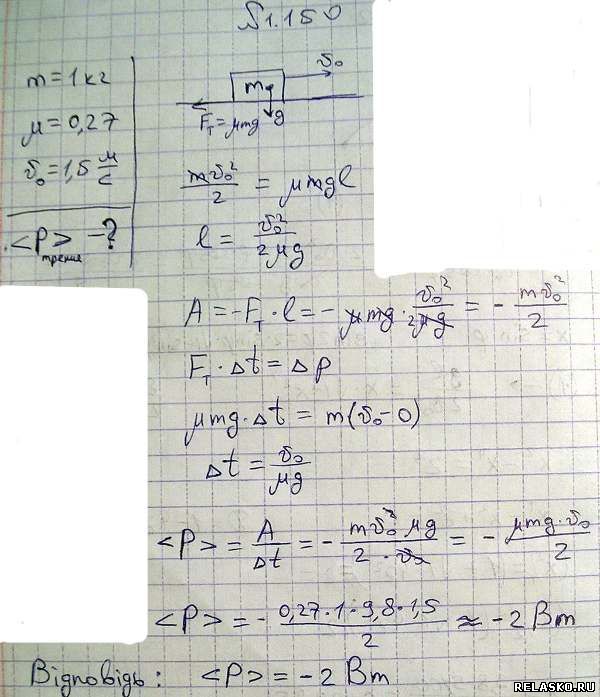 №1.150
m = 1 кг
μ = 0,27
v₀ = 1,5 м/с
<P> трения - ?
v₀
m
g
Fт = μmg
mv₀²/2 = μmgl
l = v₀²/2μg
A = -Fт · l = - μmg · v₀²/2μg = - mv₀²/2
Fт · Δt = Δp
μmg · Δt = m(v₀ - 0)
Δt = v₀/μg
<P> = A/Δt = - mv₀² μg/2 · v₀ = - μmg · v₀/2
<P> = - 0,27 · 1 · 9,8 · 1,5/2 ≈ -2 Вт
Відповідь: <P> = -2 Вт
RELASKO.RU